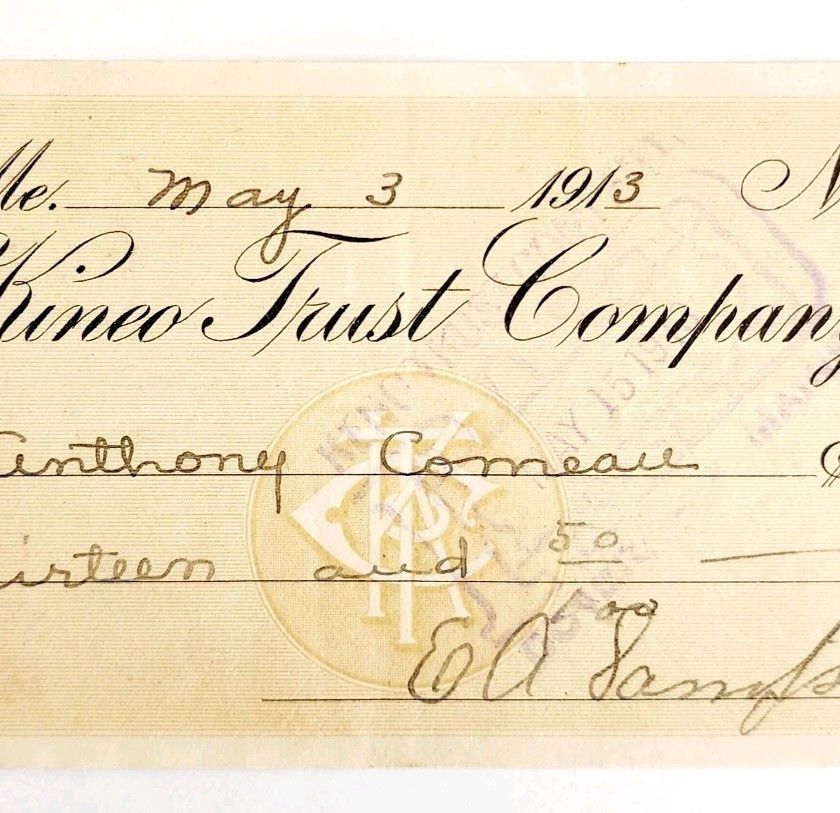 Me. May 3 1913 N
Kineo Trust Company
Anthony Comeau $
irteen and 50
100
E A
MAY 15 19